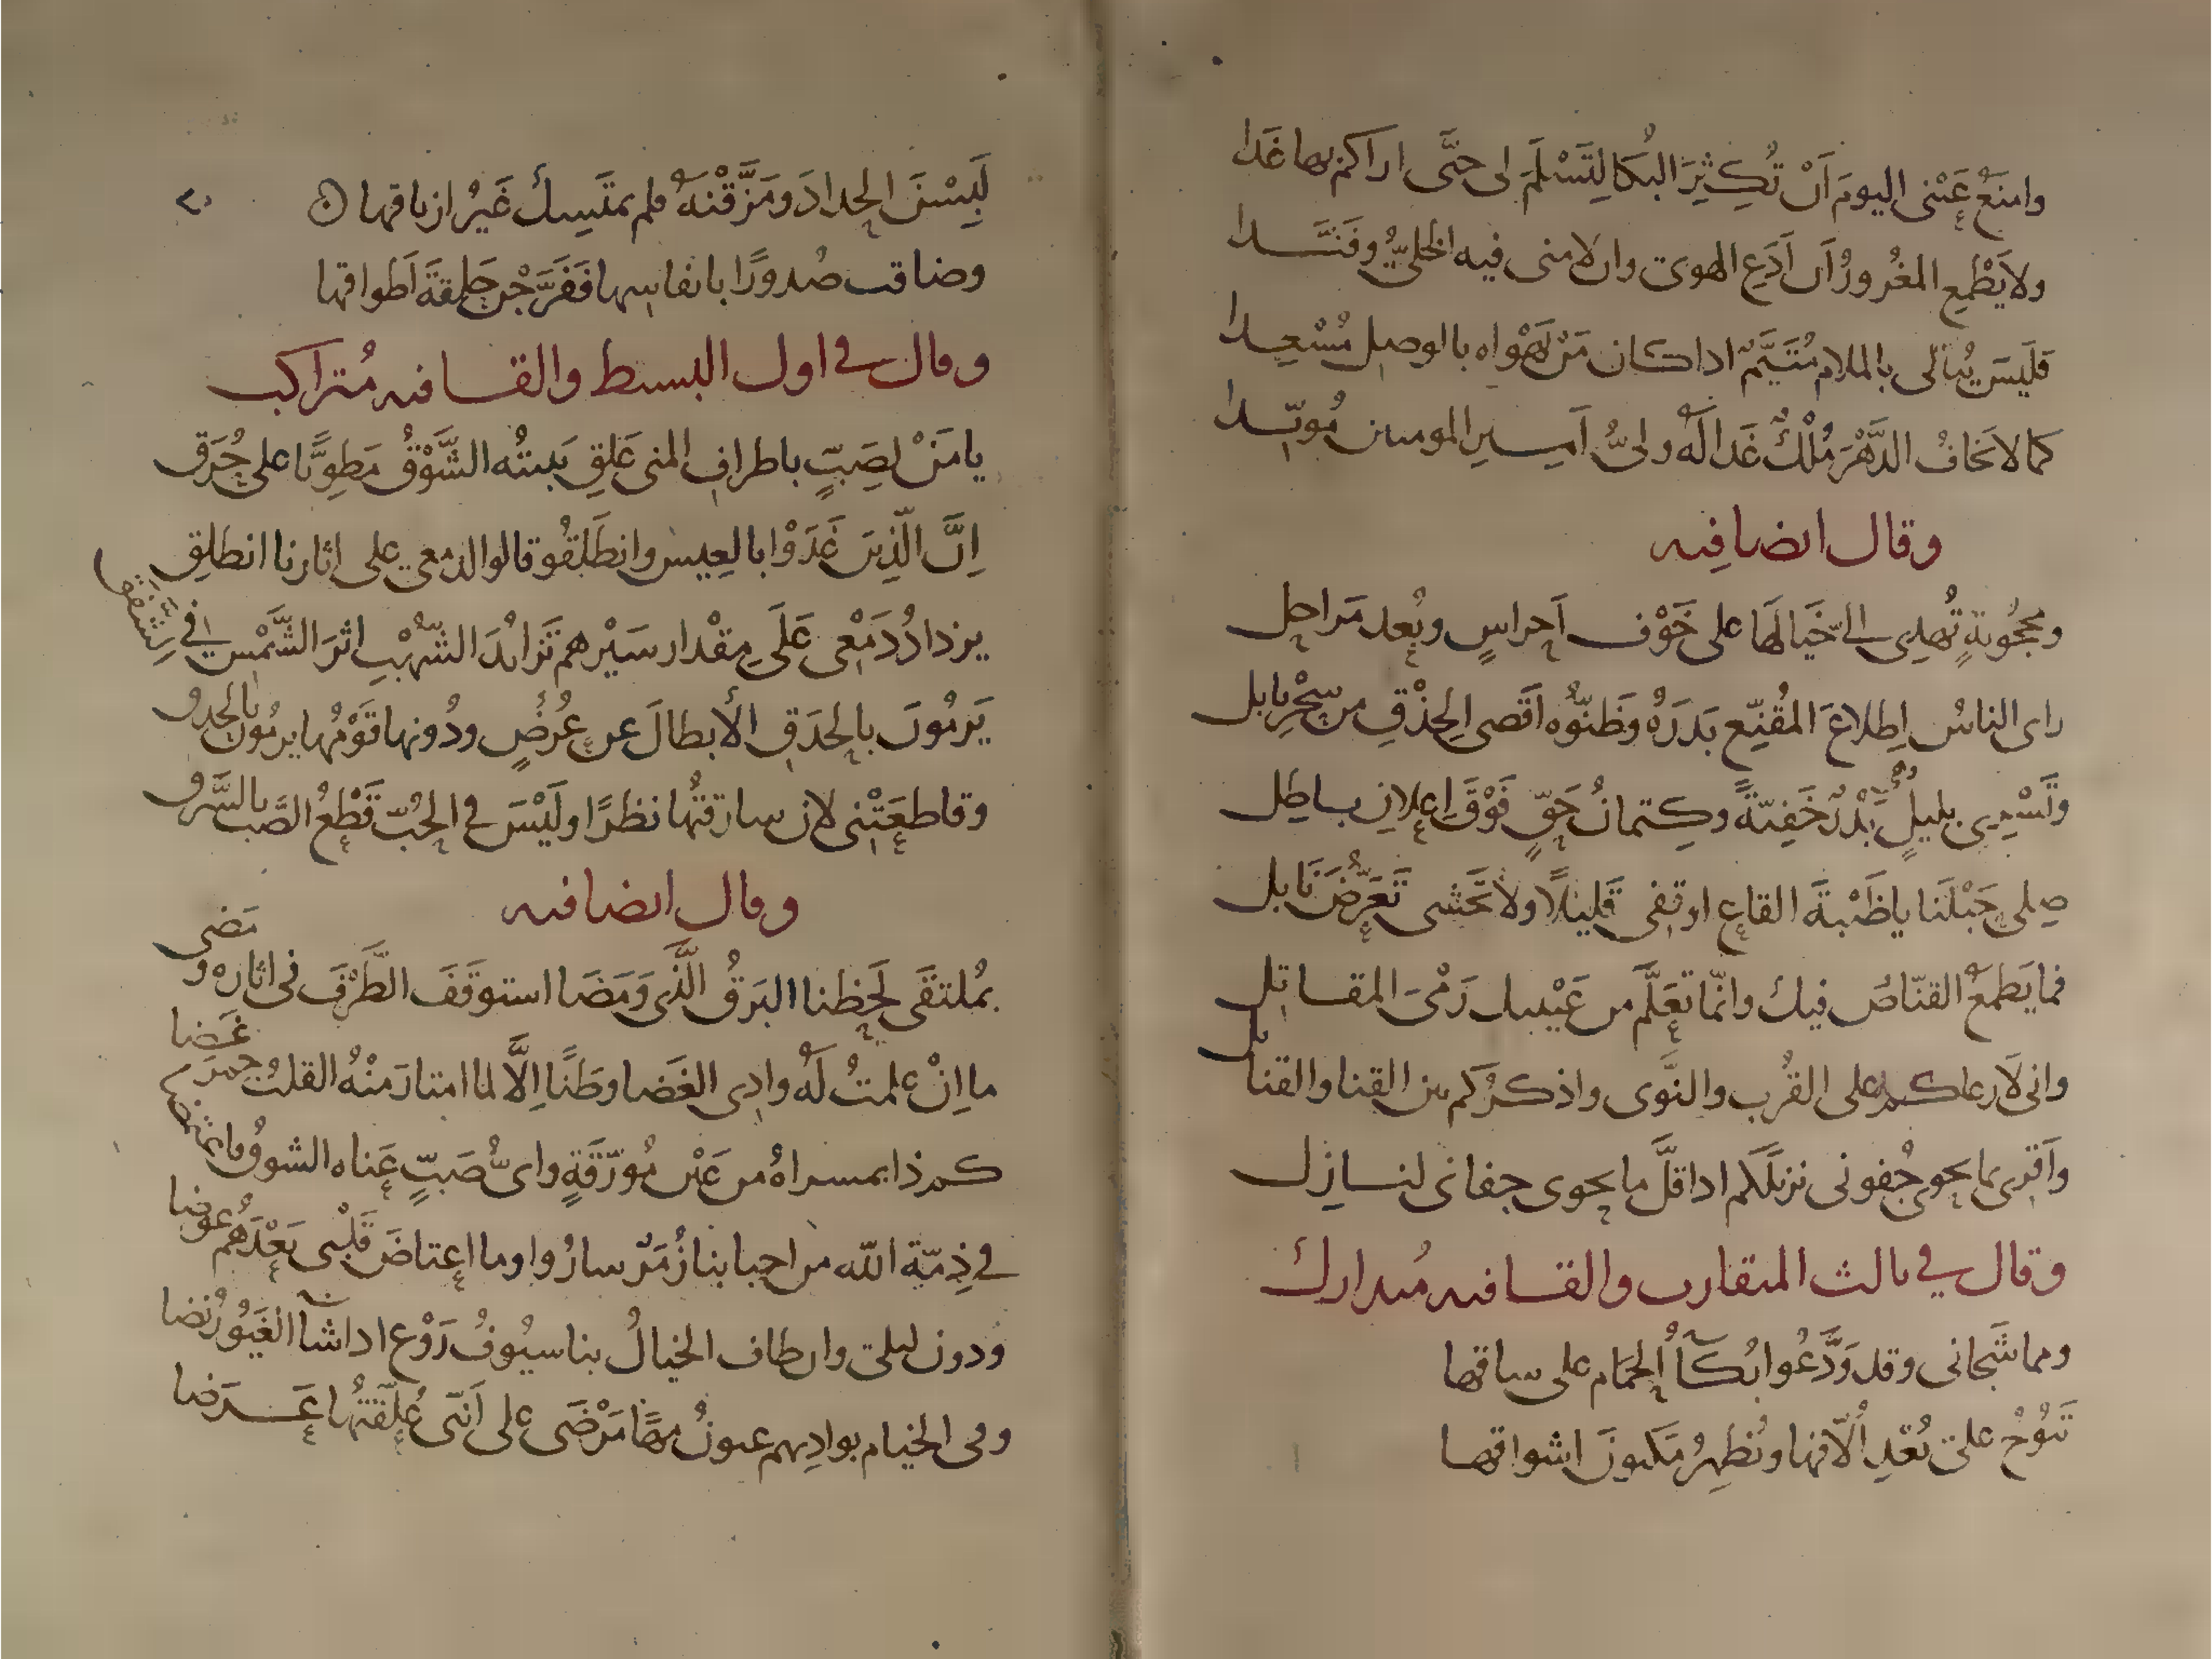 وامنَعُ عَيْنى اليومَ اَنْ تُكِثِرَ البُكَا لِتَسْلَمَ لى حتَّى اراكم بها غَدا
ولا يَطْمِعِ المغُرورُ اَن اَدَعِ الهوى وان لامنى فيه الخلىُّ وفَنَّدا
فَلَيسَ يُبالى بالملام مُتَيَّمٌ اذا كان مَنْ يَهْواه بالوصل مُسْعِدا
كما لا يَخافُ الدَّهْرَ مُلْكٌ غَدا لَهُ ولىُّ اَميرِ المومنين مُويّدا
وقال ايضا فيه
ومحجُوبةٍ تُهدِى الىَّ خَيالَها على خَوْف اَحراسٍ وبُعد مَراحِل
راى الناسُ اِطلاعَ المقُنِّعِ بَدرَهُ وظَنّوُه اَقَصى الحِذْقِ من سِحْرِ بابل
وتَسْرِى بليلٍ بَدْرٌ خَفِيّةً وكِتمانُ حَقٍّ فَوْقَ اِعلانِ باطِل
صِلى حَبْلَنا يا ظَبْيةَ القاعِ او قفى قَليلًا ولا تَخشى تَعَرُّضَ نابل
فما يَطمعُ القنّاصُ فيك وانّما تَعَلَّم من عَيْنيك رَمْىَ المقاتِل
وانى لَارعاكم على القُرب والنَّوى واذكرُكم بين القنا والقنابل
واَقرِى بما يحوى جُفونى نزيلَكم اذا قلَّ ما يحوى جفانى لنازِل
وقال فى ثالث المتقارب والقافيه مُتدارك
ومما شَجانى وقد وَدَّعُوا بُكآُ الحمَام على ساقها
تَنوُحُ على بُعْدِ اُلّافها وتُظهِرُ مَكنونَ اشواقها
لَبِسْنَ الحِدادَ ومَزَّقْنَهُ فلم يمتَسِك غَيرُ ازياقها
وضاقت صُدورًا بانفاسها فَفَرَّجْن حَلِقةَ اَطواقها
وقال فى اول البسيط والقافيه مُتراكب
يا مَنْ لِصَبٍّ باطراف المنى عَلِقِ يَبيتُه الشَّوْقُ مَطوِيًّا على حُرَق
اِنَّ الّذِينَ غَدَوْا بالعِيس وانطَلَقُو قالوا لدمعى على اثارنا انطلِق
يزدادُ دَمْعى عَلَى مِقْدار سَيْرهم تَزايُدَ الشّهْبِ اثرَ الشَّمْسِ فى الشَّفَقِ
يَرمُونَ بالحدَقِ الأبطالَ عن عُرُضٍ ودُونها قَوْمُها يرمُون بالحدق
وقاطعَتْنى لان سارقتُها نظرًا ولَيْسَ فى الحُبّ قَطْعُ الصَّب بالسَّرق
وقال ايضا فيه
بمُلتقَى لَحظِنا البَرقُ الَّذى وَمَضَا استوقَفَ الطَّرْفَ فى اثاره ومَضى
ما اِنْ علمتُ لَهُ وادِى الغَضا وطَنًا اِلَّا لما امتازَ مِنْهُ القلبُ جمرَ غَضا
كم ذا بمسراهُ من عَيْن مُورّقَةٍ واىُّ صَبٍّ عَناه الشوقُ ما نهضا
فى ذِمّة الله من احبابنا زُمَرٌ سارُوا وما اعتاضَ قَلْبى بَعْدَهُم عوضا
ودون ليلى وان طاف الخيالُ بنا سيُوفُ رَوْع اذا شآ الغَيُورُ نضا
وفى الخيام بوادِيهم عيونُ مهًا مَرْضَى على اَنّنى عُلِّقتُها عَرَضا